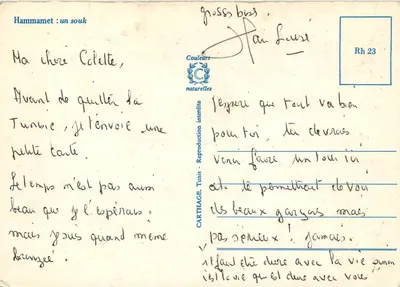 Hammamet : un souk
Ma chère Colette,
Avant de quitter la
Tunisie, je t'envoie une
petite carte.
Le temps n'est pas aussi
beau que je l'espérais,
mais je suis quand même
bronzée.
CARTHAGE, Tunis - Reproduction interdite
Couleurs
C
naturelles
Rh 23
J'espère que tout va bien
pour toi, tu devrais
venir faire un tour ici
des beaux garçons mais
pas sérieux ! jamais.
il faut être dure avec la vie
la vie qui est dure avec vous
grosses bises.